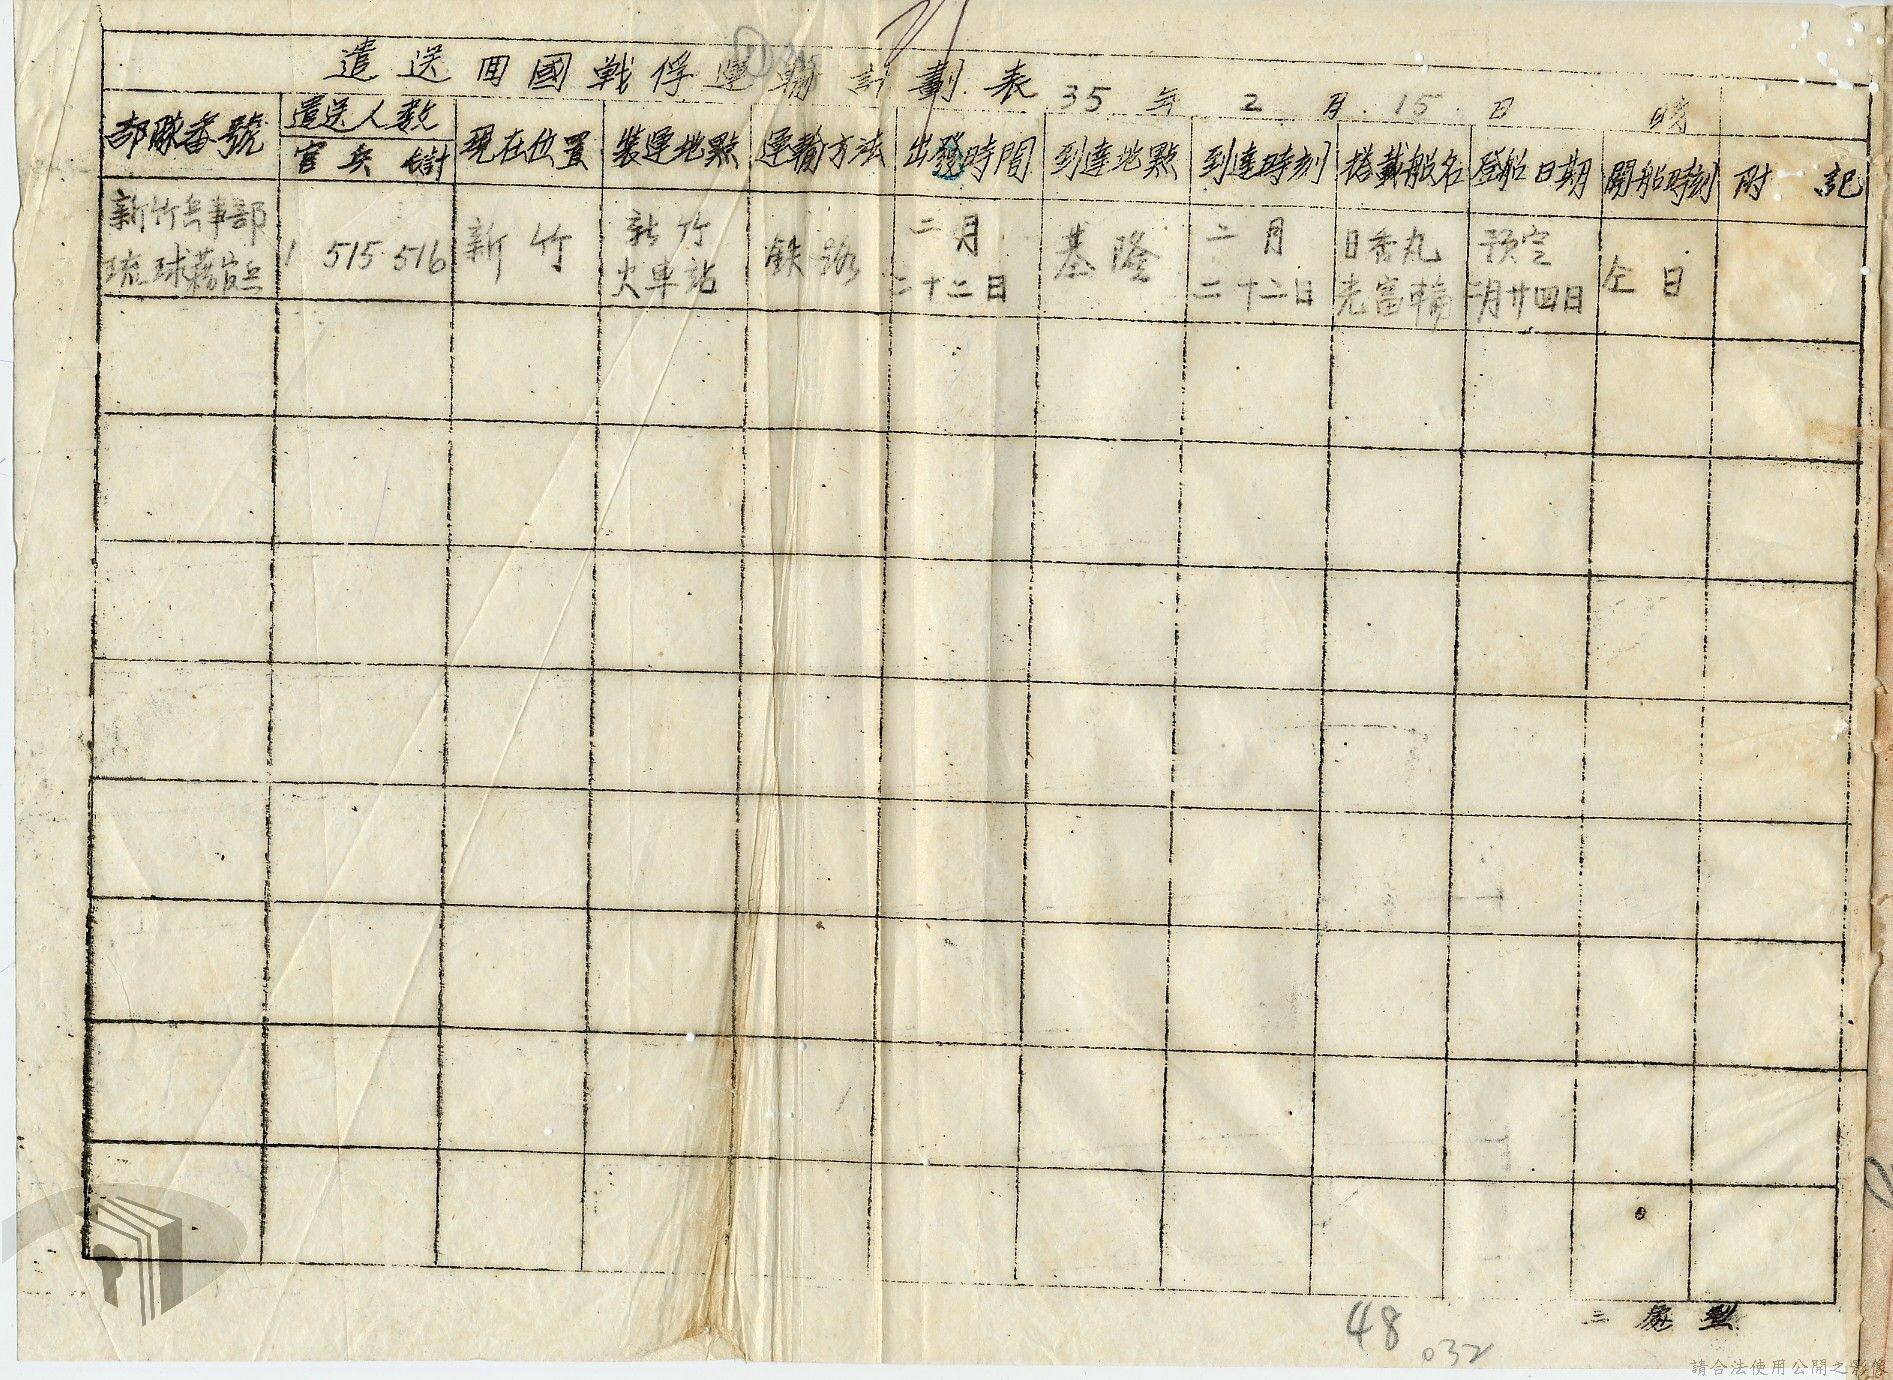 遣送回國戰俘運輸計劃表 35年 2月 15日 時
部隊番號 遣送人数 現在位置 裝運地點 運輸方法 出發時間 到達地點 到達時刻 搭載船名 登船日期 開船時刻 附記
官 兵
新竹兵事部 1 515 516 新竹 新竹 鉄路 二月 基隆 二月 日香丸 预定 仝日
琉球藉官兵 火車站 二十二日 二十二日 老富輪 二月廿四日
三處製
48
032
請合法使用公開之影像